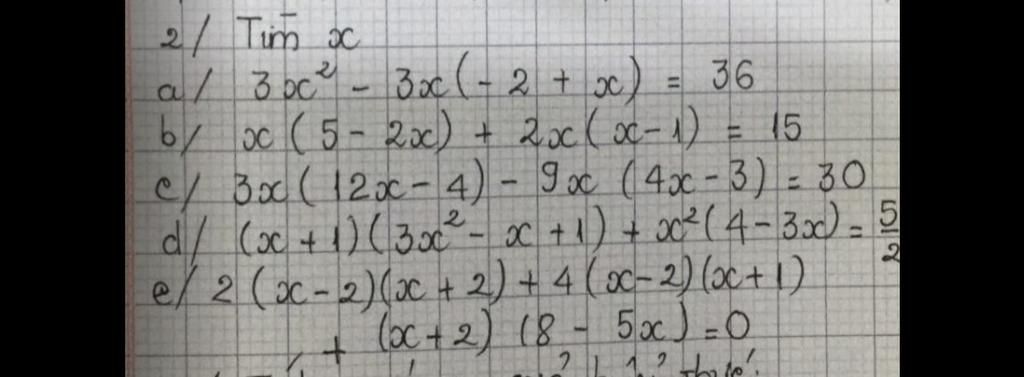 2/ Tìm x
a/ 3x² - 3x(-2 + x) = 36
b/ x(5 - 2x) + 2x(x-1) = 15
c/ 3x(12x - 4) - 9x (4x - 3) = 30
d/ (x + 1)(3x² - x + 1) + x²(4 - 3x) = 5/2
e/ 2 (x - 2)(x + 2) + 4(x - 2)(x + 1)
+ (x + 2) (8 - 5x) = 0